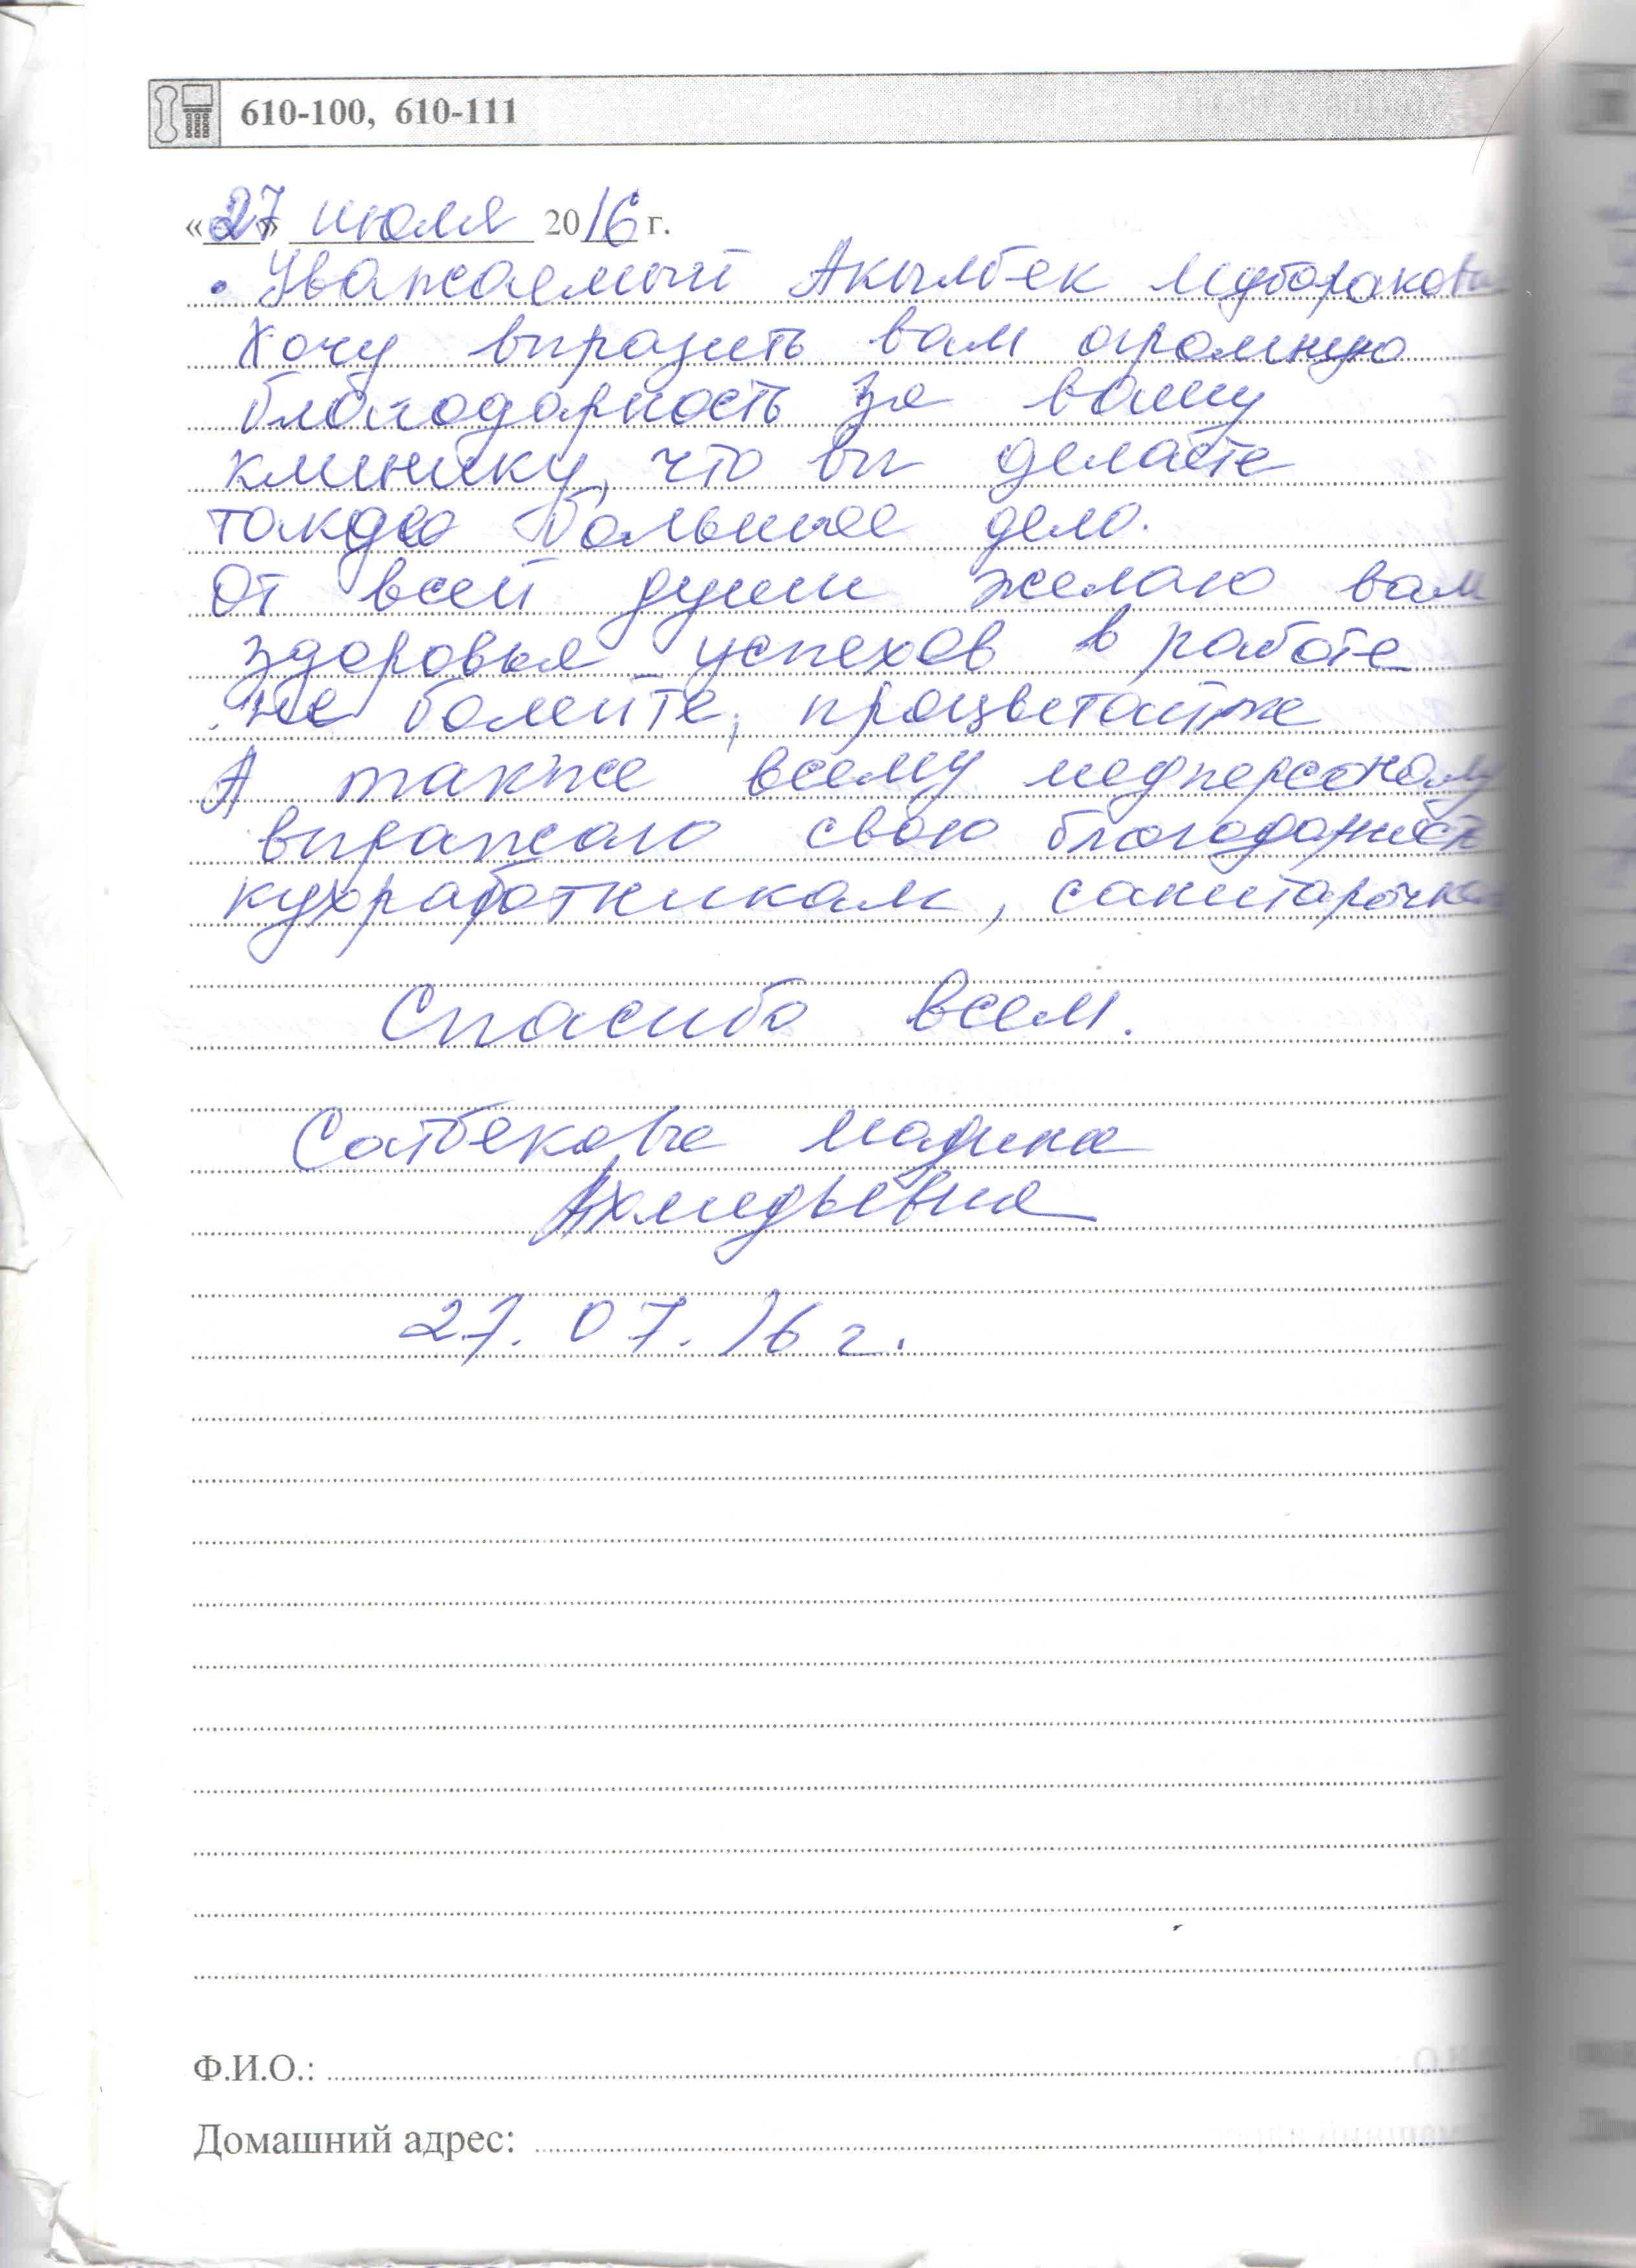 610-100, 610-111
«27» июля 2016 г.
Уважаемый Акылбек
Хочу выразить вам огромную
благодарность за вашу
клинику, что вы делаете
большое дело.
От всей души желаю вам
здоровья успехов в работе
не болейте, процветайте
А также всему медперсоналу
выражаю свою благодарность
кухработникам, санитарочкам
Спасибо всем.
Сатбекова Мадина
Ахмедьевна
27.07.16 г.
Ф.И.О.:
Домашний адрес: